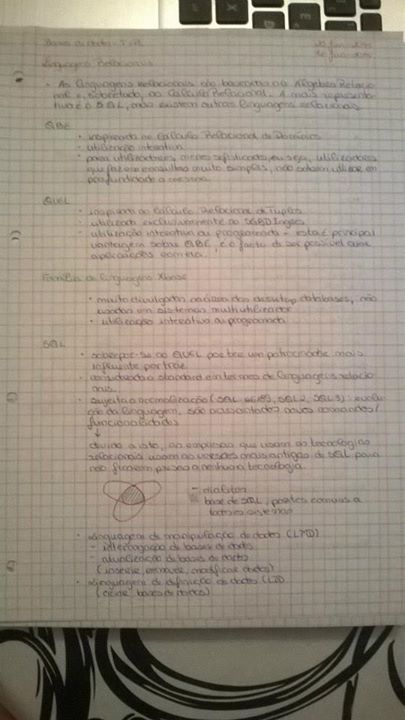 Bases de dados - T.
Linguagens Relacionais
• As linguagens relacionais são baseadas na Álgebra Relacio
nal e, sobretudo, no Cálculo Relacional. A mais representa
tiva é o SQL, mas existem outras linguagens relacionais.
QBE
• inspirada no Cálculo Relacional de Domínios
• utilização interativa
• para utilizadores menos sofisticados, ou seja, utilizadores
que fazem consultas muito simples, não
profundidade a mesma.
QUEL
• inspirada no Cálculo Relacional de Tuplos
• utilizada exclusivamente no SGBD Ingres
• utilização interativa ou programada - esta é principal
vantagem sobre QBE, é o facto de ser possível criar
aplicações com ela.
Família de linguagens Xbase
• muito divulgada desktop databases, não
usados em sistemas multiutilizador
• utilização interativa ou programada
SQL
• sobrepôs-se ao QUEL por ter um patrocinador mais
influente por trás
• considerado o standard em termos de linguagens relacio
nais.
• sujeita a normalização (SQL SQL2, SQL3) : evolu-
ção da linguagem, são acrescentados novos comandos/
funcionalidades
↓
devido a isto, as empresas que usam as tecnologias
relacionais usam as versões mais antigas de SQL para
não ficarem presas a nenhuma tecnologia.
- dialetos
base de SQL, partes comuns a
todos os sistemas
• Linguagem de manipulação de dados (LMD)
- interrogação de bases de dados
- atualização de bases de dados
(inserir, remover, modificar dados)
• Linguagem de definição de dados (LDD
(criar bases de dados)